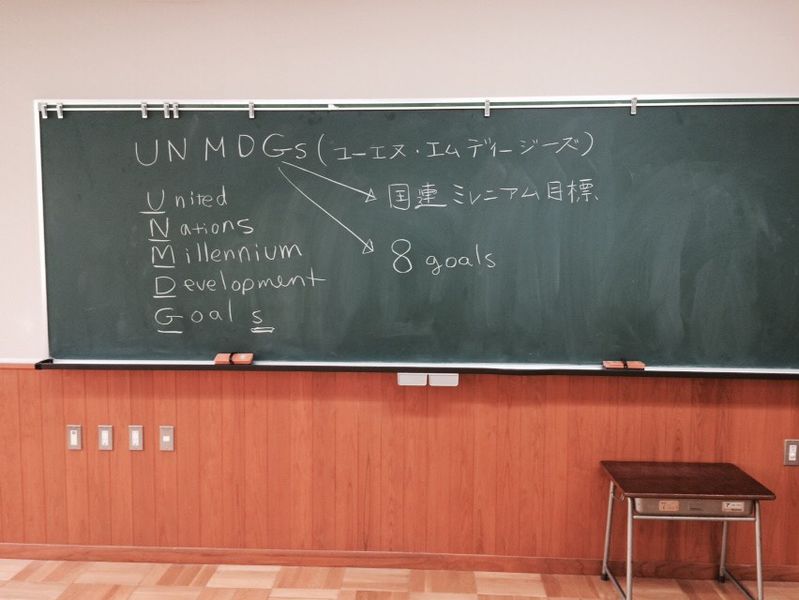 UN MDGs (ユーエヌ・エムディージーズ)
国連ミレニアム目標
8 goals
United
Nations
Millennium
Development
Goals